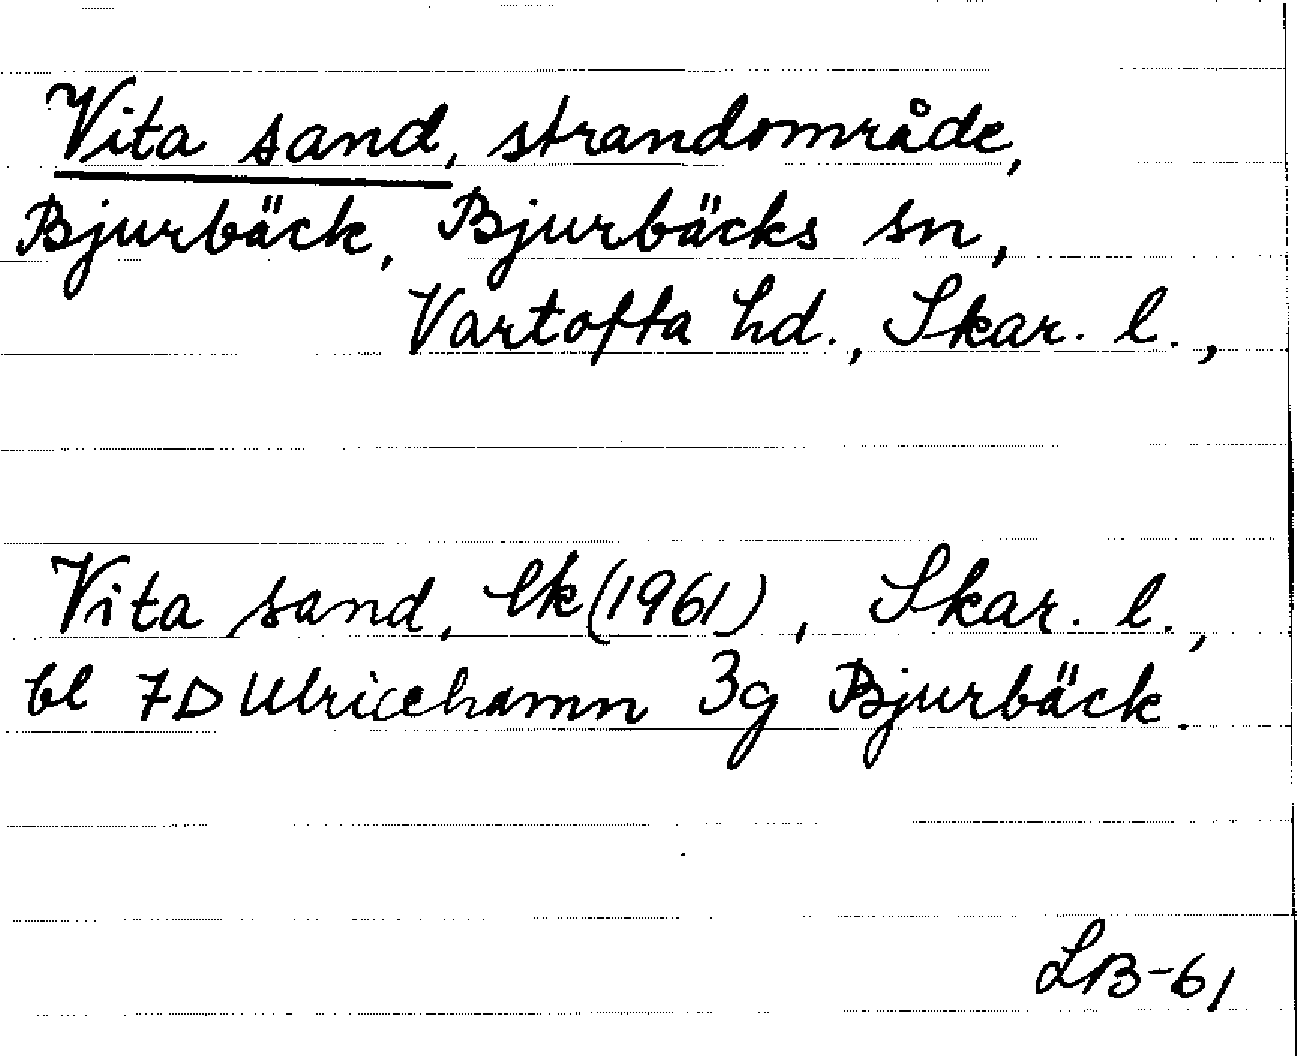 Vita sand, strandområde,
Bjurbäck, Bjurbäcks sn,
Vartofta hd., Skar. l.,
Vita sand, Ek (1961), Skar. l.,
bl 7D Ulricehamn 3g Bjurbäck.
LB-61